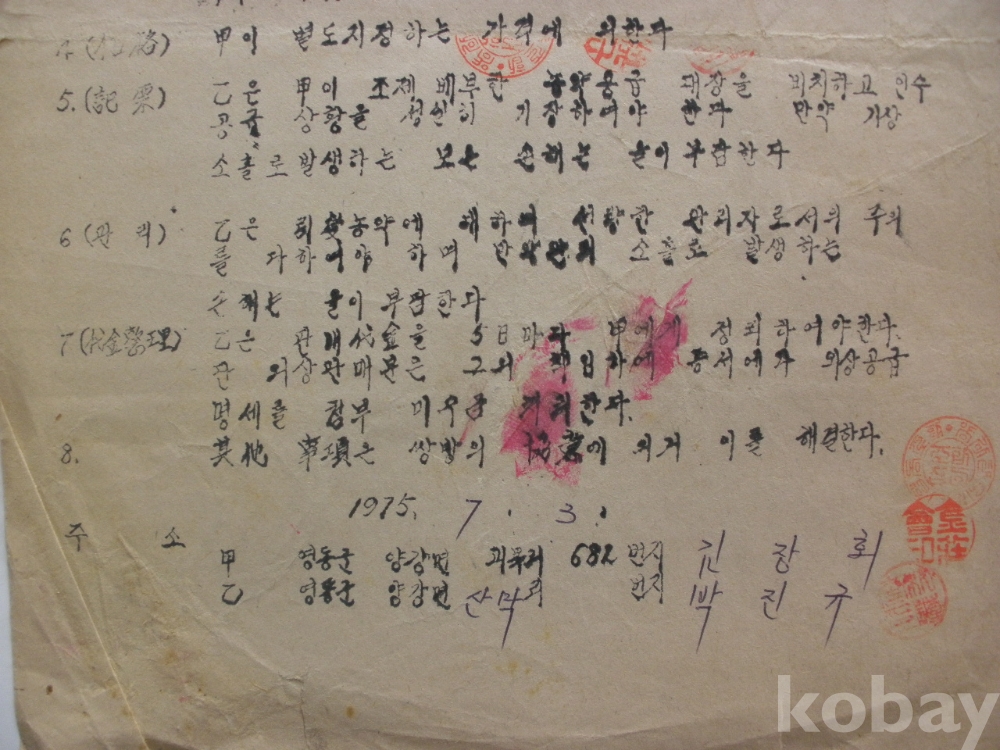 4 (価格) 甲이 별도지정하는 가격에 의한다
5. (記票) 乙은 甲이 조제 배부한 농약공급 대장을 비치하고 인수
공급 상황을 성실히 기장하여야 한다 만약 기상
소홀로 발생하는 모든 손해는 乙이 부담한다
6 (관리) 乙은 농약에 대하여 선량한 관리자로서의 주의
를 다하여야 하며 만약 관리 소홀로 발생하는
손해는 乙이 부담한다
7 (代金整理) 乙은 판매代金을 5日마다 甲에게 정리하여야한다.
단 외상판매분은 그의 책임하에 증서에다 외상공급
명세를 첨부
8. 其他 事項은 쌍방의 協意에 의거 이를 해결한다.
1975. 7. 3.
주 소
甲 영동군 양강면 괴목리 682 번지 김장회
乙 영동군 양강면 산막리 번지 박진규
kobay